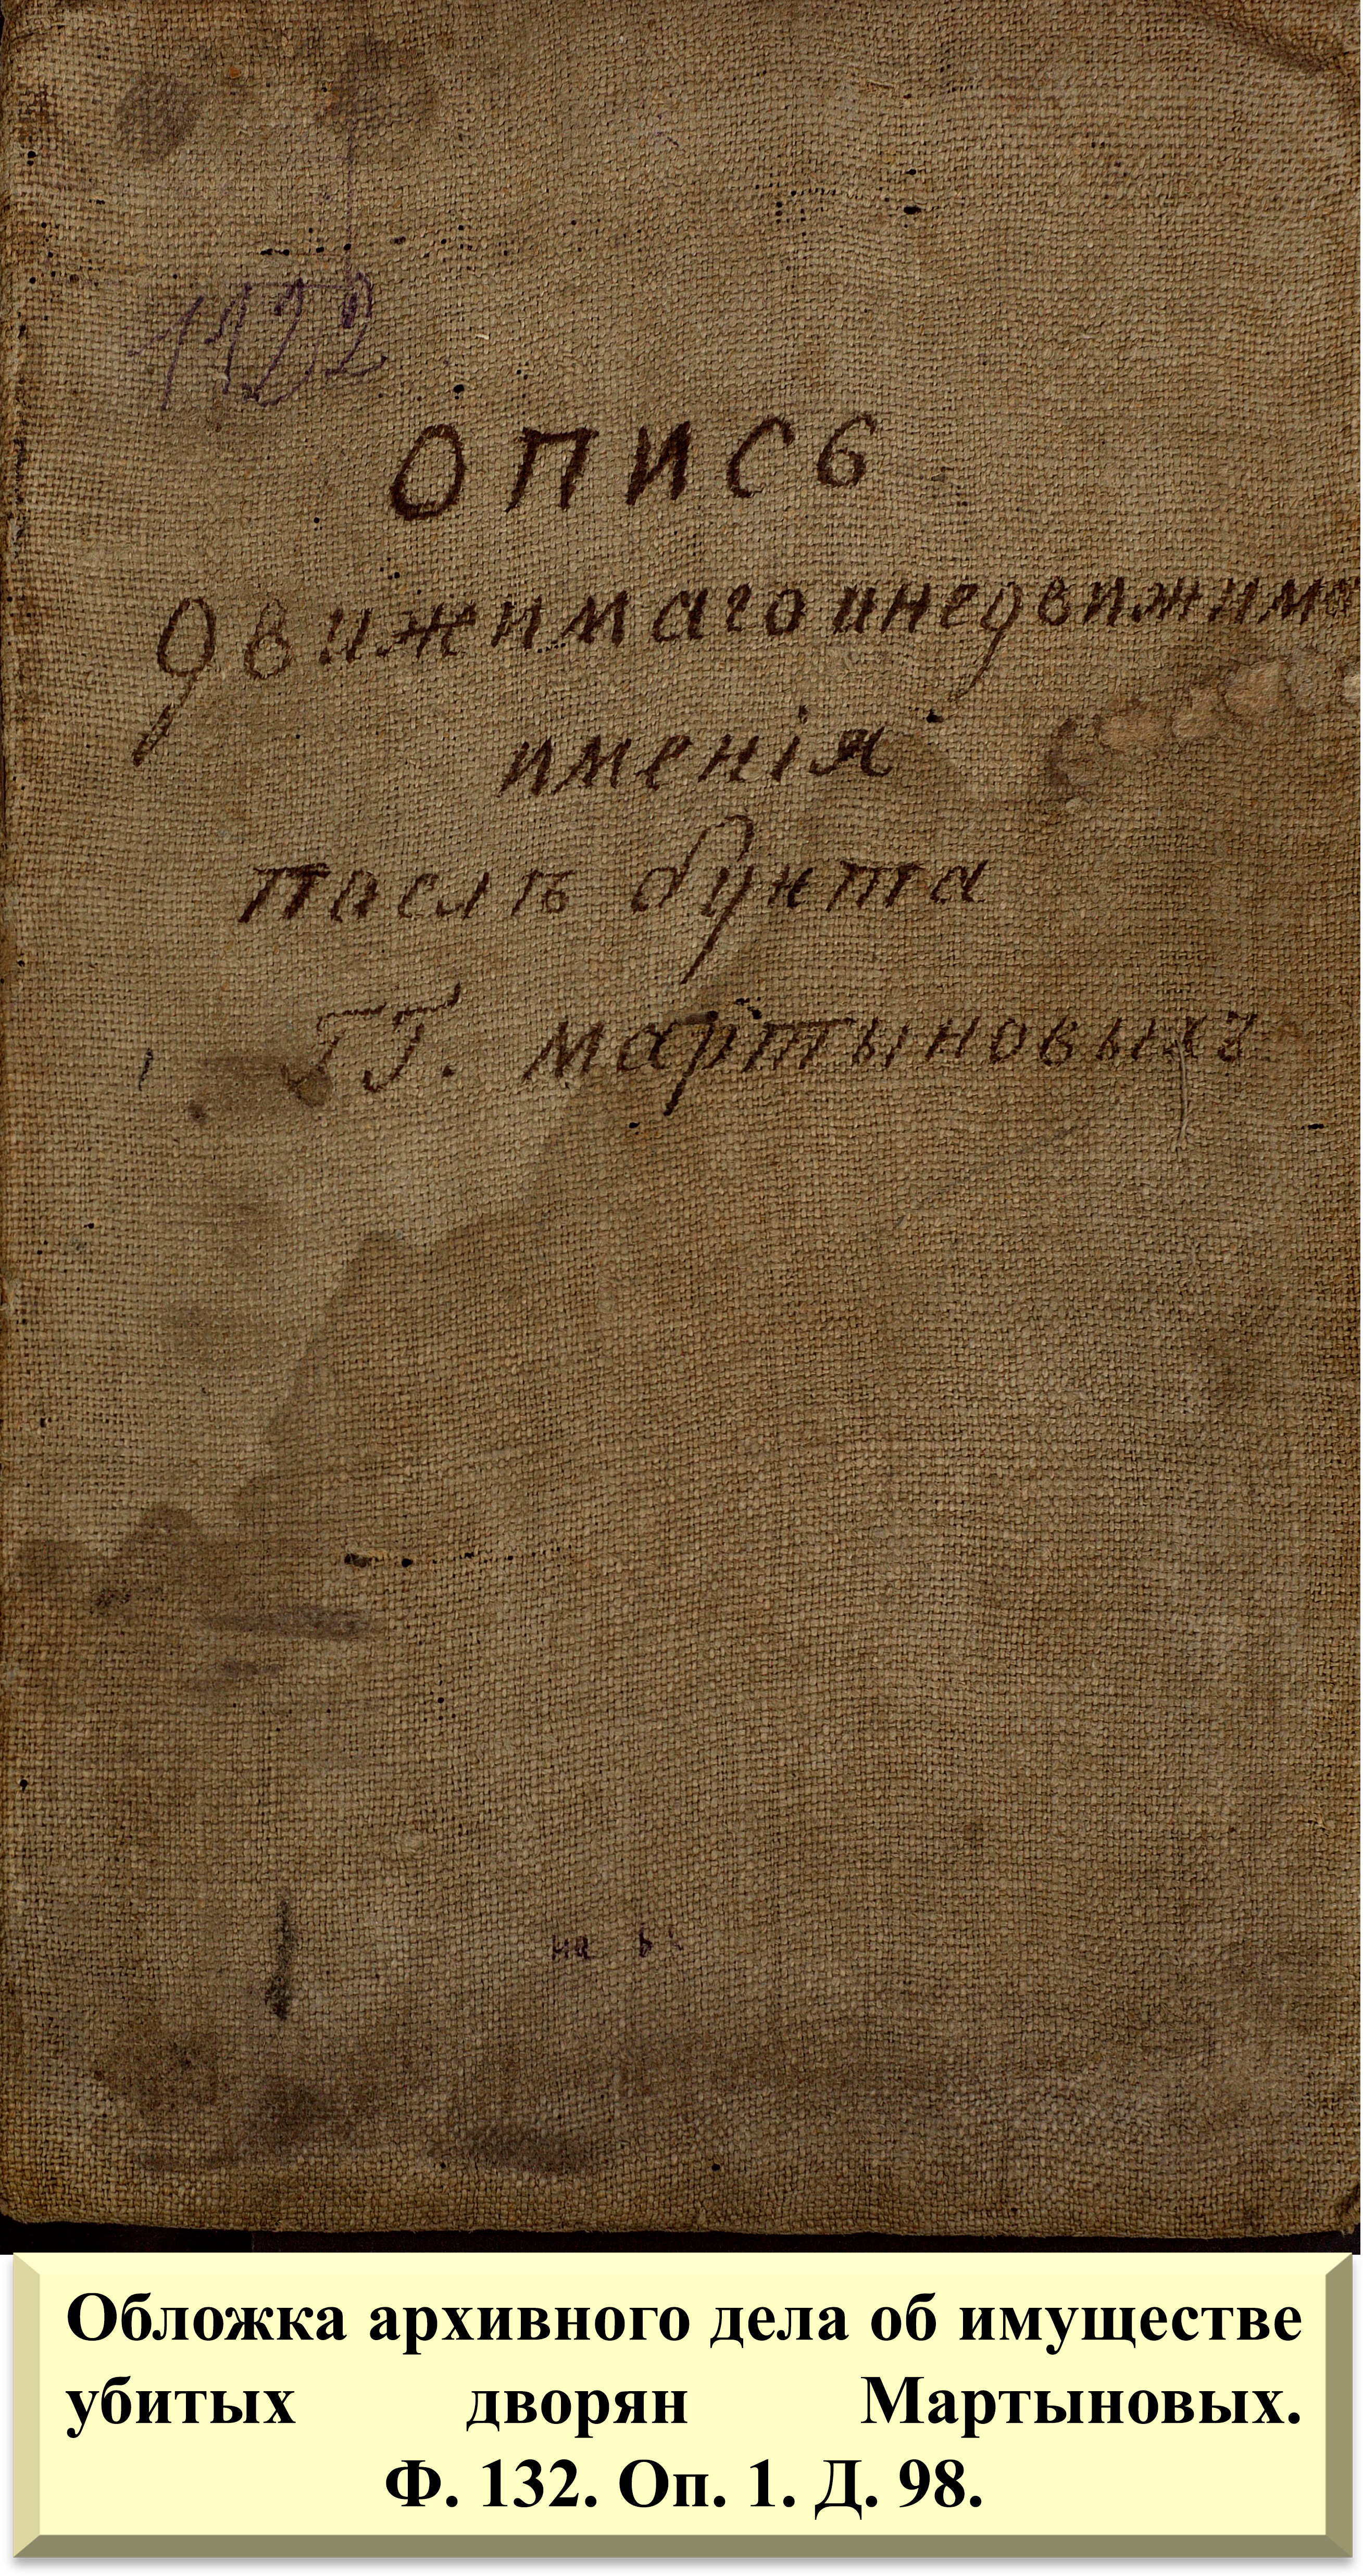 1122
опись
движимаго и недвижимо
именія
паслѣ бунта
ГГ. мартыновыхъ
на
Обложка архивного дела об имуществе
убитых дворян Мартыновых.
Ф. 132. Оп. 1. Д. 98.